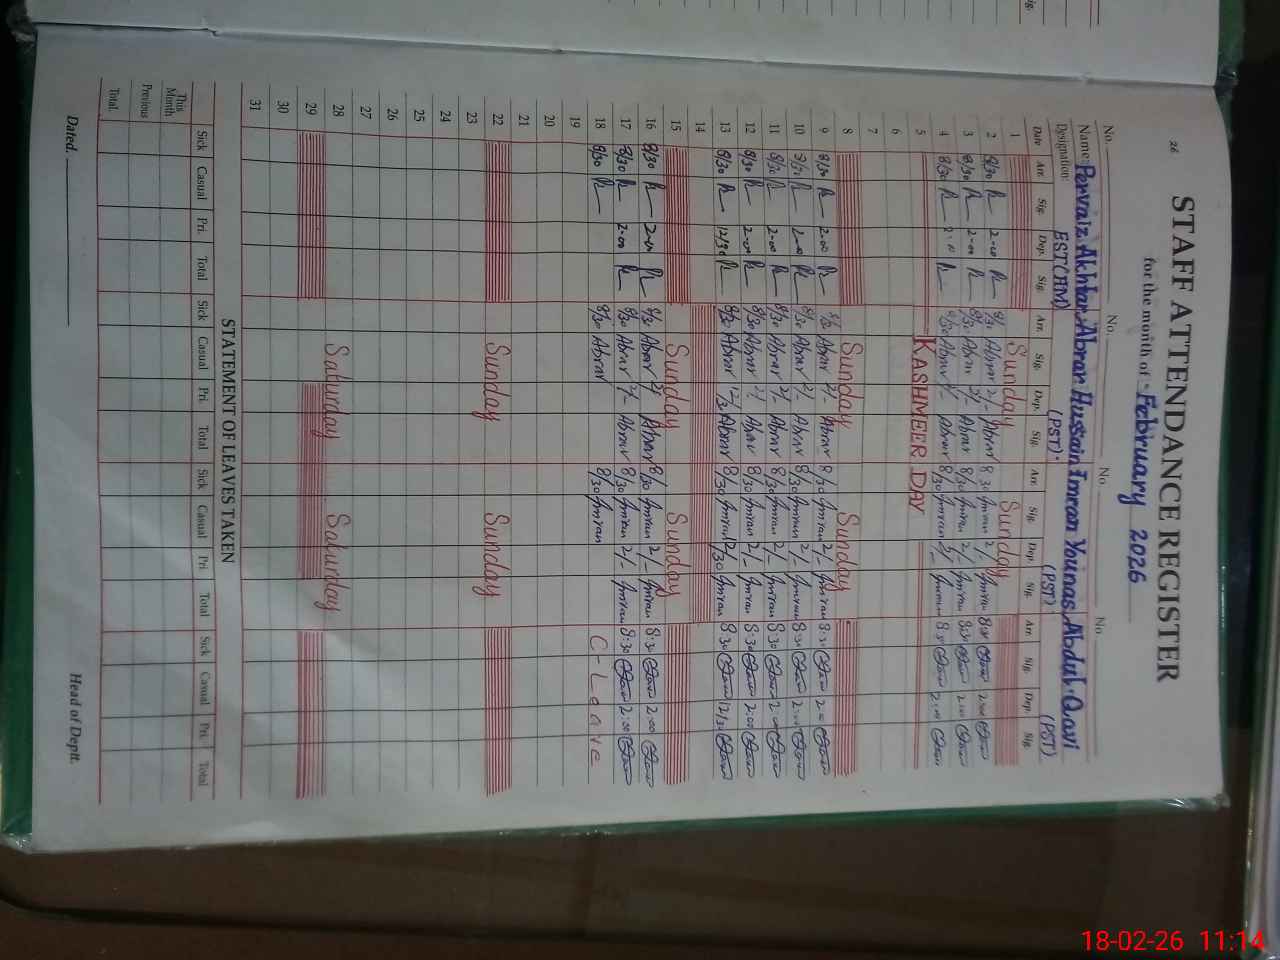 26
STAFF ATTENDANCE REGISTER
for the month of February 2026
No. No. No. No.
Name: Pervaiz Akhtar Abrar Hussain Imran Younas Abdul Qavi
Designation: EST(HM) (PST) (PST) (PST)
Date Arr. Sig. Dep. Sig Arr. Sig. Dep. Sig. Arr. Sig. Dep. Sig. Arr. Sig. Dep. Sig.
1 Sunday Sunday
2 8/30 2-00 8/30 Abrar 2/- Abrar 8/30 Imran 2/- Imran 8:30 2:00
3 8/30 2-00 8/30 Abrar 2/- Abrar 8/30 Imran 2/- Imran 8:30 2:00
4 8/30 2-00 8/30 Abrar 2/- Abrar 8/30 Imran 2/- Imran 8:30 2:00
5 KASHMEER DAY
6
7
8 Sunday Sunday
9 8/30 2-00 8/30 Abrar 2/- Abrar 8/30 Imran 2/- Imran 8:30 2:00
10 8/30 2-00 8/30 Abrar 2/- Abrar 8/30 Imran 2/- Imran 8:30 2:00
11 8/30 2-00 8/30 Abrar 2/- Abrar 8/30 Imran 2/- Imran 8:30 2:00
12 8/30 2-00 8/30 Abrar 2/- Abrar 8/30 Imran 2/- Imran 8:30 2:00
13 8/30 12/30 8/30 Abrar 12/30 Abrar 8/30 Imran 12/30 Imran 8:30 12/30
14
15 Sunday Sunday
16 8/30 2-00 8/30 Abrar 2/- Abrar 8/30 Imran 2/- Imran 8:30 2:00
17 8/30 2-00 8/30 Abrar 2/- Abrar 8/30 Imran 2/- Imran 8:30 2:00
18 8/30 8/30 Abrar 8/30 Imran C-Leave
19
20
21
22 Sunday Sunday
23
24
25
26
27
28 Saturday Saturday
29
30
31
STATEMENT OF LEAVES TAKEN
Sick Casual Pri. Total Sick Casual Pri Total Sick Casual Pri Total Sick Casual Pri Total
This Month
Previous
Total
Dated.
Head of Deptt.
18-02-26 11:14